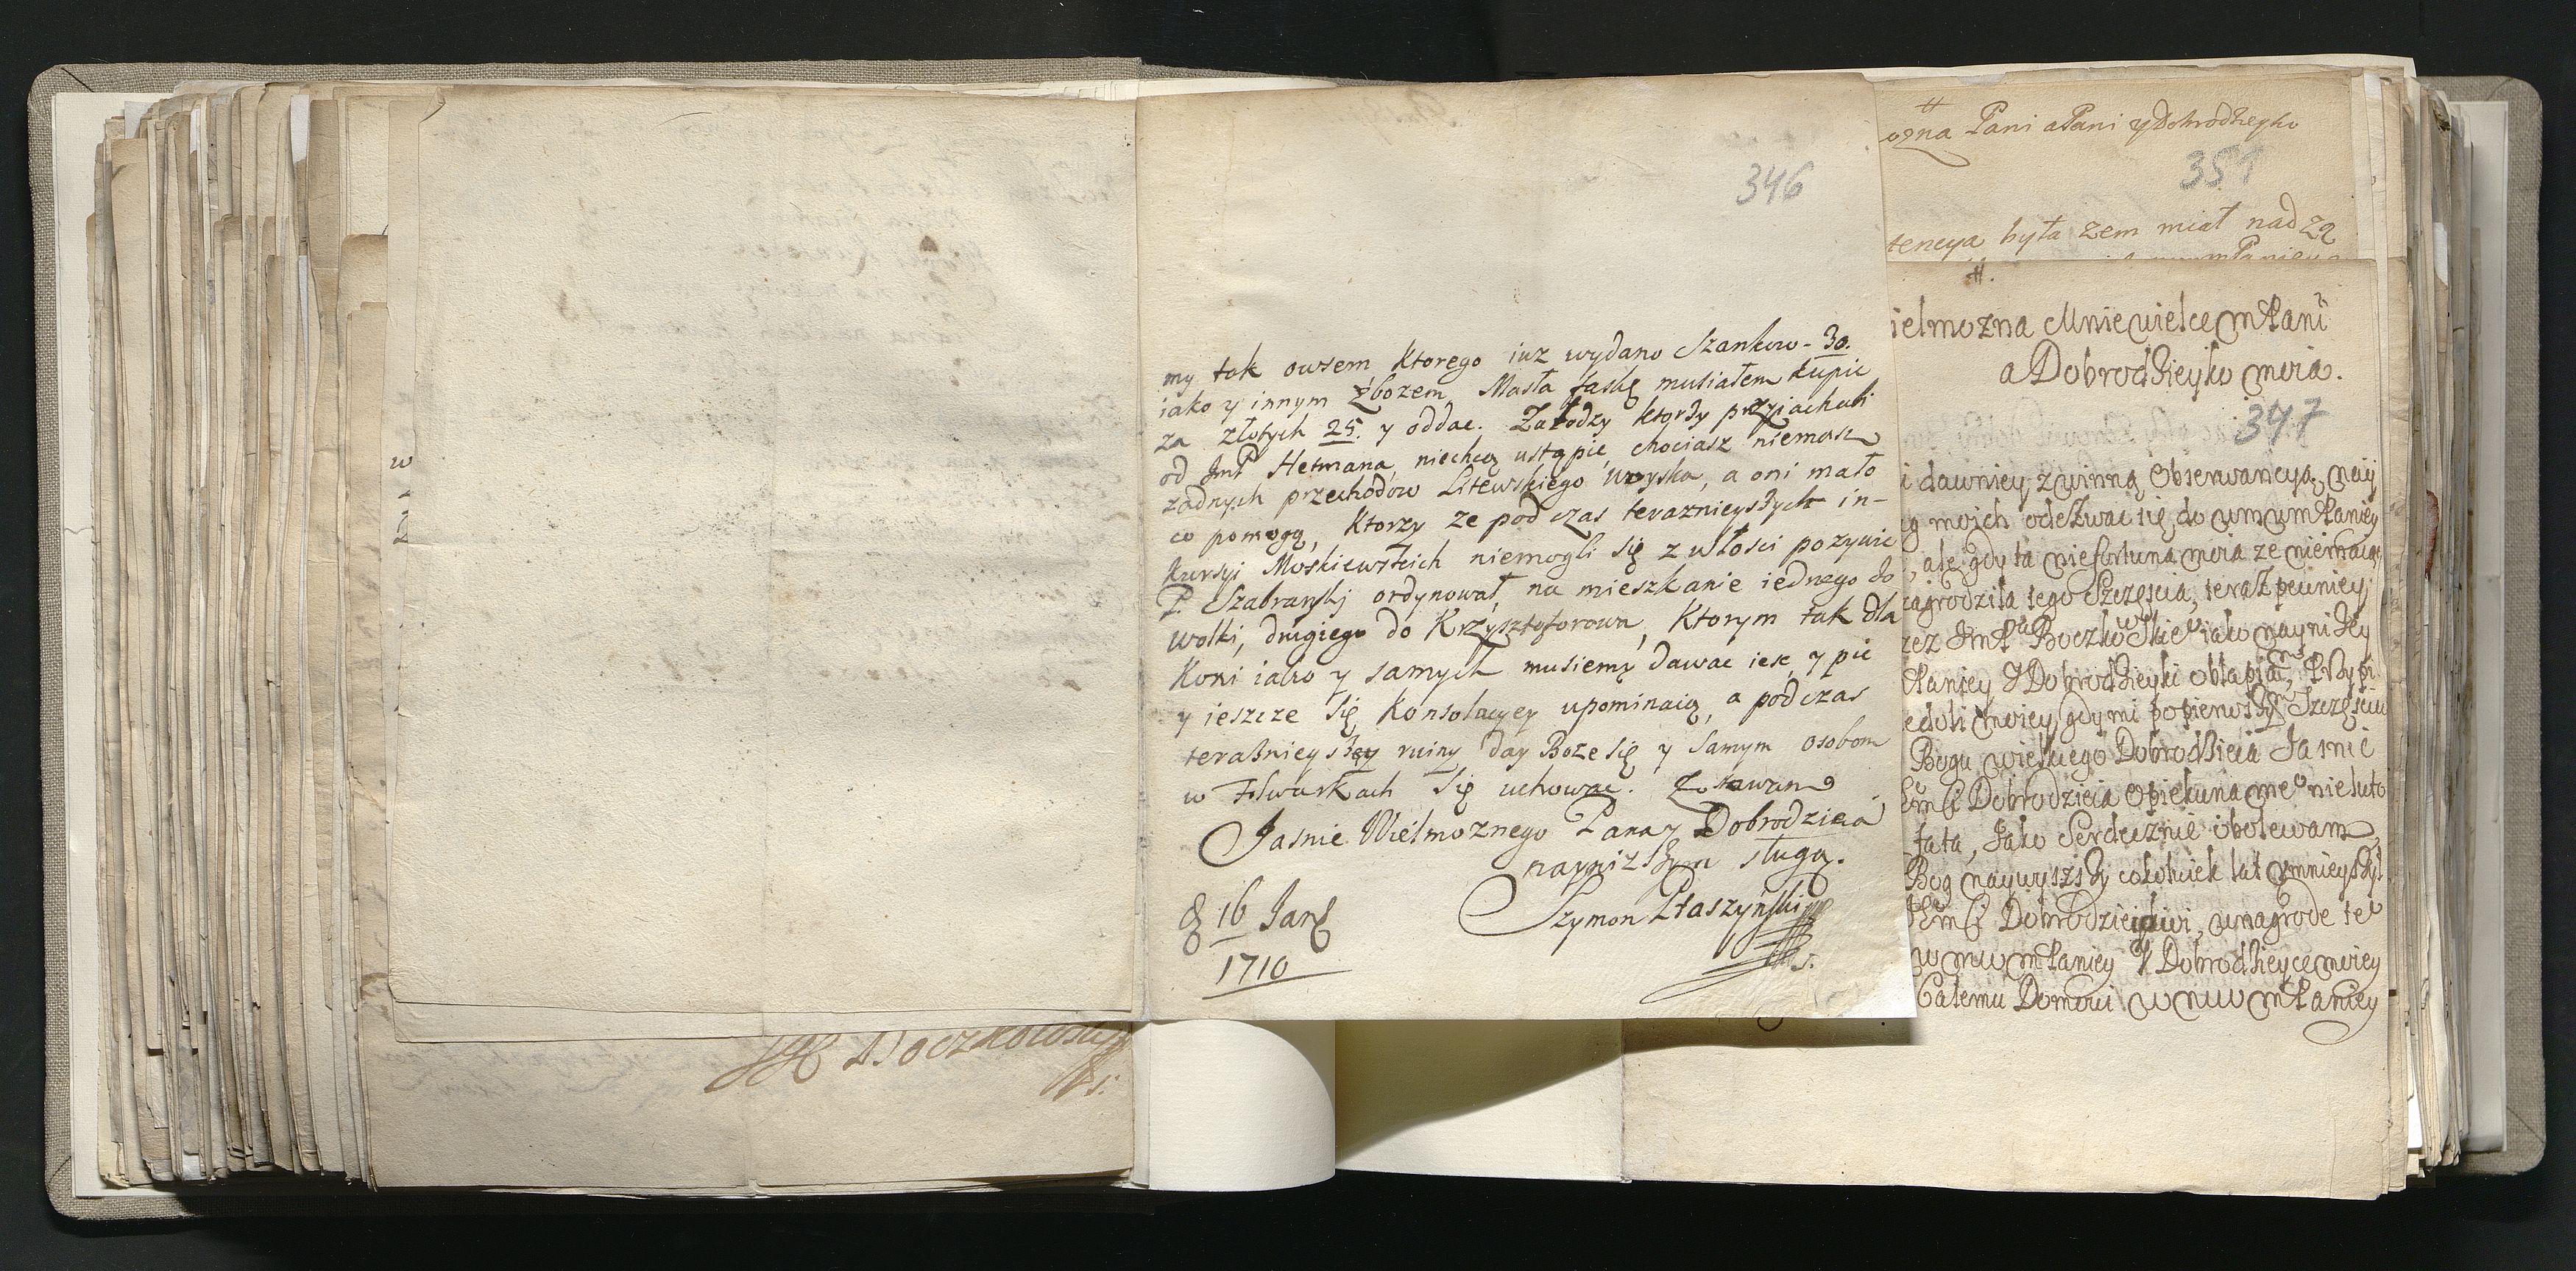 346
my tak owsem, ktorego iuz wydano Szankow - 30.
iako y innym zbozem, Masła faskę musiałem kupic
za złotych 25. y oddac. Załodzy ktorzy przyiachali
od JmP Hetmana, niechcą ustąpic, chociasz niemasz
zadnych przechodow Litewskiego woyska, a oni mało
co pomogą, ktorzy ze pod czas terazniejszych in-
kursyi Moskiewskich niemogli się z włości pozywic
P. Szabranskj ordynował na mieszkanie iednego do
Wolki, drugiego do Krzysztoforowa, Ktorym tak dla
Koni iako y samych musiemy dawac iesc, y pic
y ieszcze się Konsolacyey upominaią, a pod czas
teraßnieyszey ruiny day Boze się y samym osobom
w Folwarkach się uchowac. Zostawam
Jasnie Wielmoznego Pana y Dobrodzieia
naynizszym sługą.
Szymon Ptaszyński
16 Jan
1710
ozna Pani aPani y Dobrodzieyko
351
tencya była zem miał nadzą
ielmozna Mnie wielce mPani
a Dobrodzieyko moia.
347
i dawniey z winną Obserwancyą, nay
moich odezwac się do wmwmPaniey
, ale gdy ta niefortuna moia ze niemaią
zagrodziła tego Szczęscia, teraz pewniey
rzez JmP iako nayni zey
Paniey y Dobrodzieyki obłapiam,
edoli moiey, gdy mi popierwszym Szczęsciu
Bogu wielkiego Dobrodzieia Jasnie
Dobrodzieia Opiekuna me nieluto
lata, Jako Serdecznie ubolewam,
Bog naywyszszy cokolwiek lat
Dobrodzieiowi, wnagrode te
wmwmPaniey y Dobrodzieyce moiey
Całemu Domowi wmwmPaniey
w
Boczkowsky